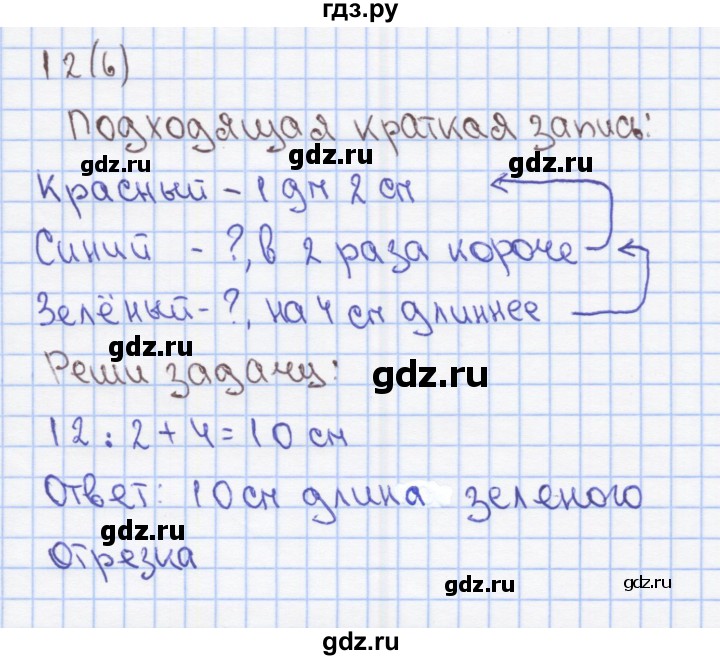 гдз.ру
12(6)
Подходящая краткая запись:
gdz.ru gdz.ru gdz.ru
Красный - 1 дм 2 см
Синий - ?, в 2 раза короче
Зелёный - ?, на 4 см длиннее
gdz.ru
Реши задачу: gdz.ru
12 : 2 + 4 = 10 см
Ответ: 10 см длина зеленого
gdz.ru
отрезка
gdz.ru gdz.ru
gdz.ru